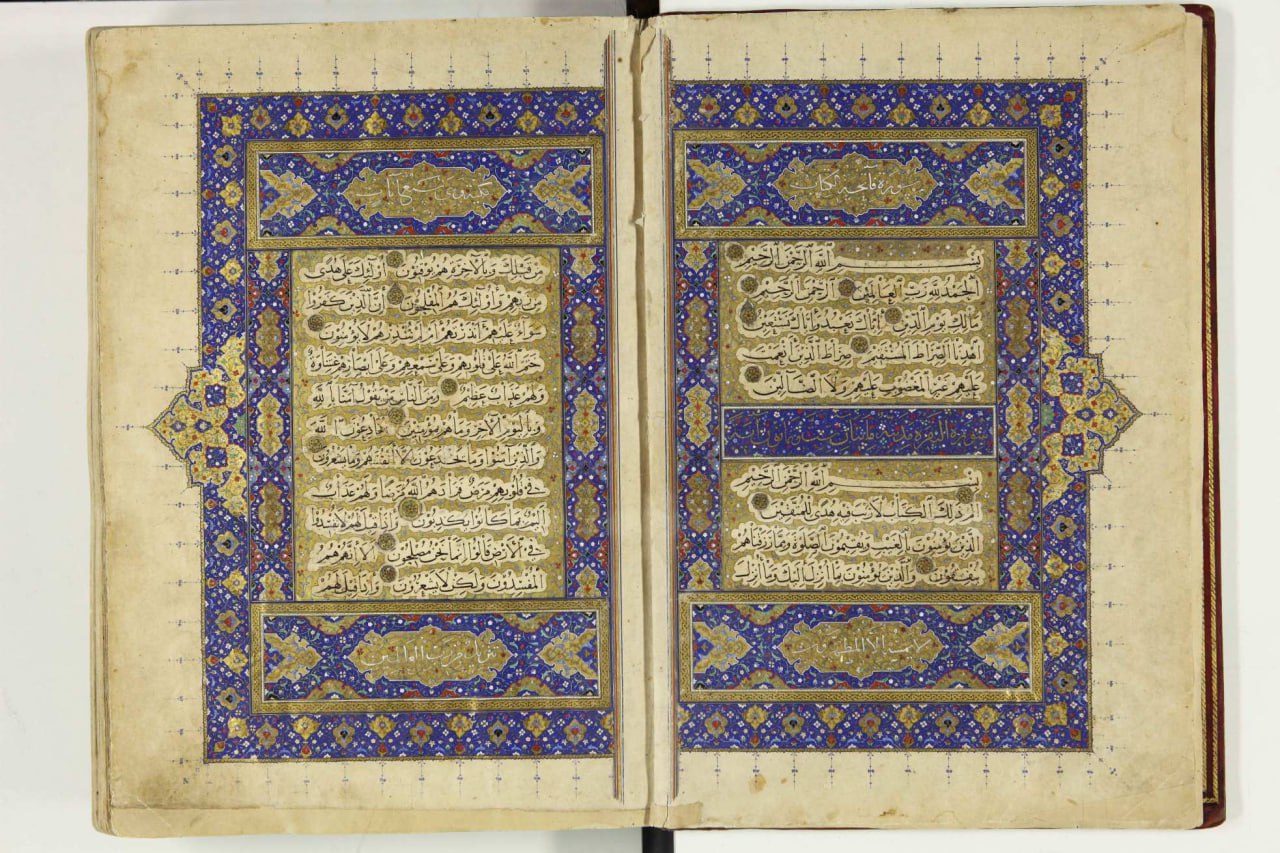 سورة فاتحة الكتاب
بِسْمِ اللَّهِ الرَّحْمَنِ الرَّحِيمِ
الْحَمْدُ لِلَّهِ رَبِّ الْعَالَمِينَ الرَّحْمَنِ الرَّحِيمِ
مَالِكِ يَوْمِ الدِّينِ إِيَّاكَ نَعْبُدُ وَإِيَّاكَ نَسْتَعِينُ
اهْدِنَا الصِّرَاطَ الْمُسْتَقِيمَ صِرَاطَ الَّذِينَ أَنْعَمْتَ
عَلَيْهِمْ غَيْرِ الْمَغْضُوبِ عَلَيْهِمْ وَلَا الضَّالِّينَ
سورة البقرة مدنية مائتان وست وثمانون
بِسْمِ اللَّهِ الرَّحْمَنِ الرَّحِيمِ
الم ذَلِكَ الْكِتَابُ لَا رَيْبَ فِيهِ هُدًى لِلْمُتَّقِينَ
الَّذِينَ يُؤْمِنُونَ بِالْغَيْبِ وَيُقِيمُونَ الصَّلَوةَ وَمِمَّا رَزَقْنَاهُمْ
يُنْفِقُونَ وَالَّذِينَ يُؤْمِنُونَ بِمَا أُنْزِلَ إِلَيْكَ وَمَا أُنْزِلَ
لا يمسه الا المطهرون
مكية وهي سبع آيات
مِنْ قَبْلِكَ وَبِالْآخِرَةِ هُمْ يُوقِنُونَ أُولَئِكَ عَلَى هُدًى
مِنْ رَبِّهِمْ وَأُولَئِكَ هُمُ الْمُفْلِحُونَ إِنَّ الَّذِينَ كَفَرُوا
سَوَاءٌ عَلَيْهِمْ ءَأَنْذَرْتَهُمْ أَمْ لَمْ تُنْذِرْهُمْ لَا يُؤْمِنُونَ
خَتَمَ اللَّهُ عَلَى قُلُوبِهِمْ وَعَلَى سَمْعِهِمْ وَعَلَى أَبْصَارِهِمْ غِشَاوَةٌ
وَلَهُمْ عَذَابٌ عَظِيمٌ وَمِنَ النَّاسِ مَنْ يَقُولُ آمَنَّا بِاللَّهِ
وَبِالْيَوْمِ الْآخِرِ وَمَا هُمْ بِمُؤْمِنِينَ يُخَادِعُونَ اللَّهَ
وَالَّذِينَ آمَنُوا وَمَا يَخْدَعُونَ إِلَّا أَنْفُسَهُمْ وَمَا يَشْعُرُونَ
فِي قُلُوبِهِمْ مَرَضٌ فَزَادَهُمُ اللَّهُ مَرَضًا وَلَهُمْ عَذَابٌ
أَلِيمٌ بِمَا كَانُوا يَكْذِبُونَ وَإِذَا قِيلَ لَهُمْ لَا تُفْسِدُوا
فِي الْأَرْضِ قَالُوا إِنَّمَا نَحْنُ مُصْلِحُونَ أَلَا إِنَّهُمْ هُمُ
الْمُفْسِدُونَ وَلَكِنْ لَا يَشْعُرُونَ وَإِذَا قِيلَ لَهُمْ
تنزيل من رب العالمين